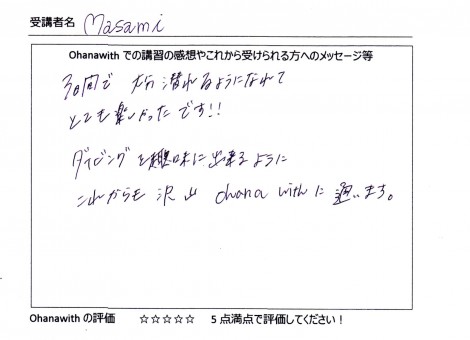 受講者名 Masami
Ohanawith での講習の感想やこれから受けられる方へのメッセージ等
3日間で 大分 潜れるようになれて
とても楽しかった です!!
ダイビング を趣味に出来るように
これからも 沢山 ohana with に 通います。
Ohanawith の評価 ☆☆☆☆☆ 5 点満点で評価してください！